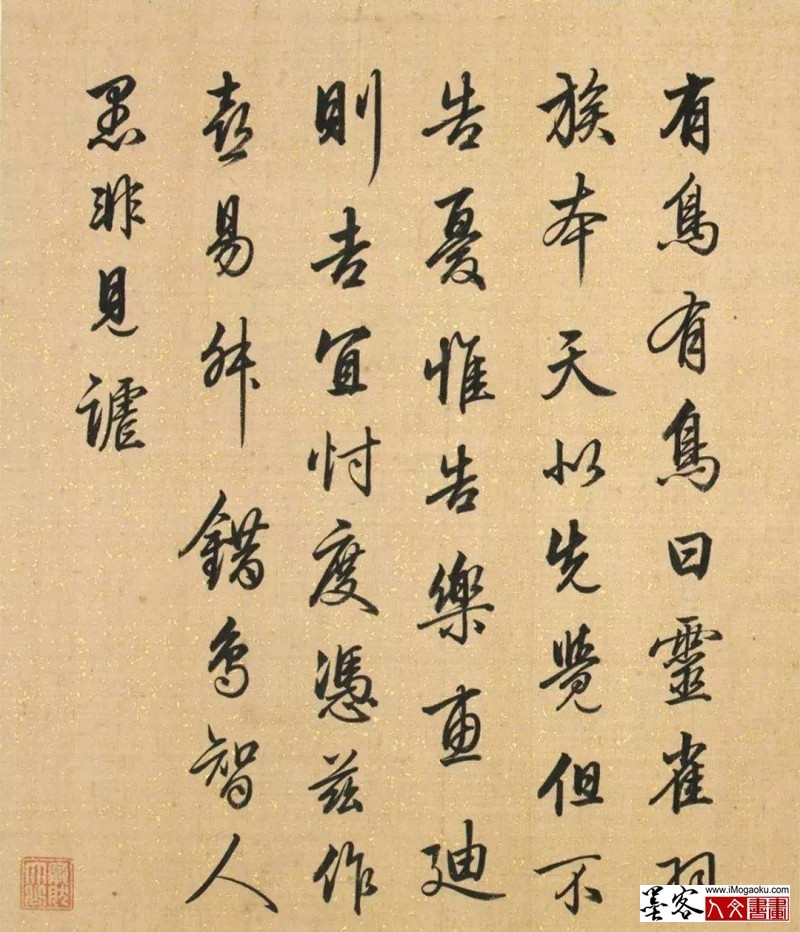 有鳥有鳥曰靈雀羽
族本天以先覺但不
告憂惟告樂惠迪
則吉宜忖度憑茲作
喜易舛錯鳥智人
愚非見謔
www.iMogaoku.com
墨客人文書畫